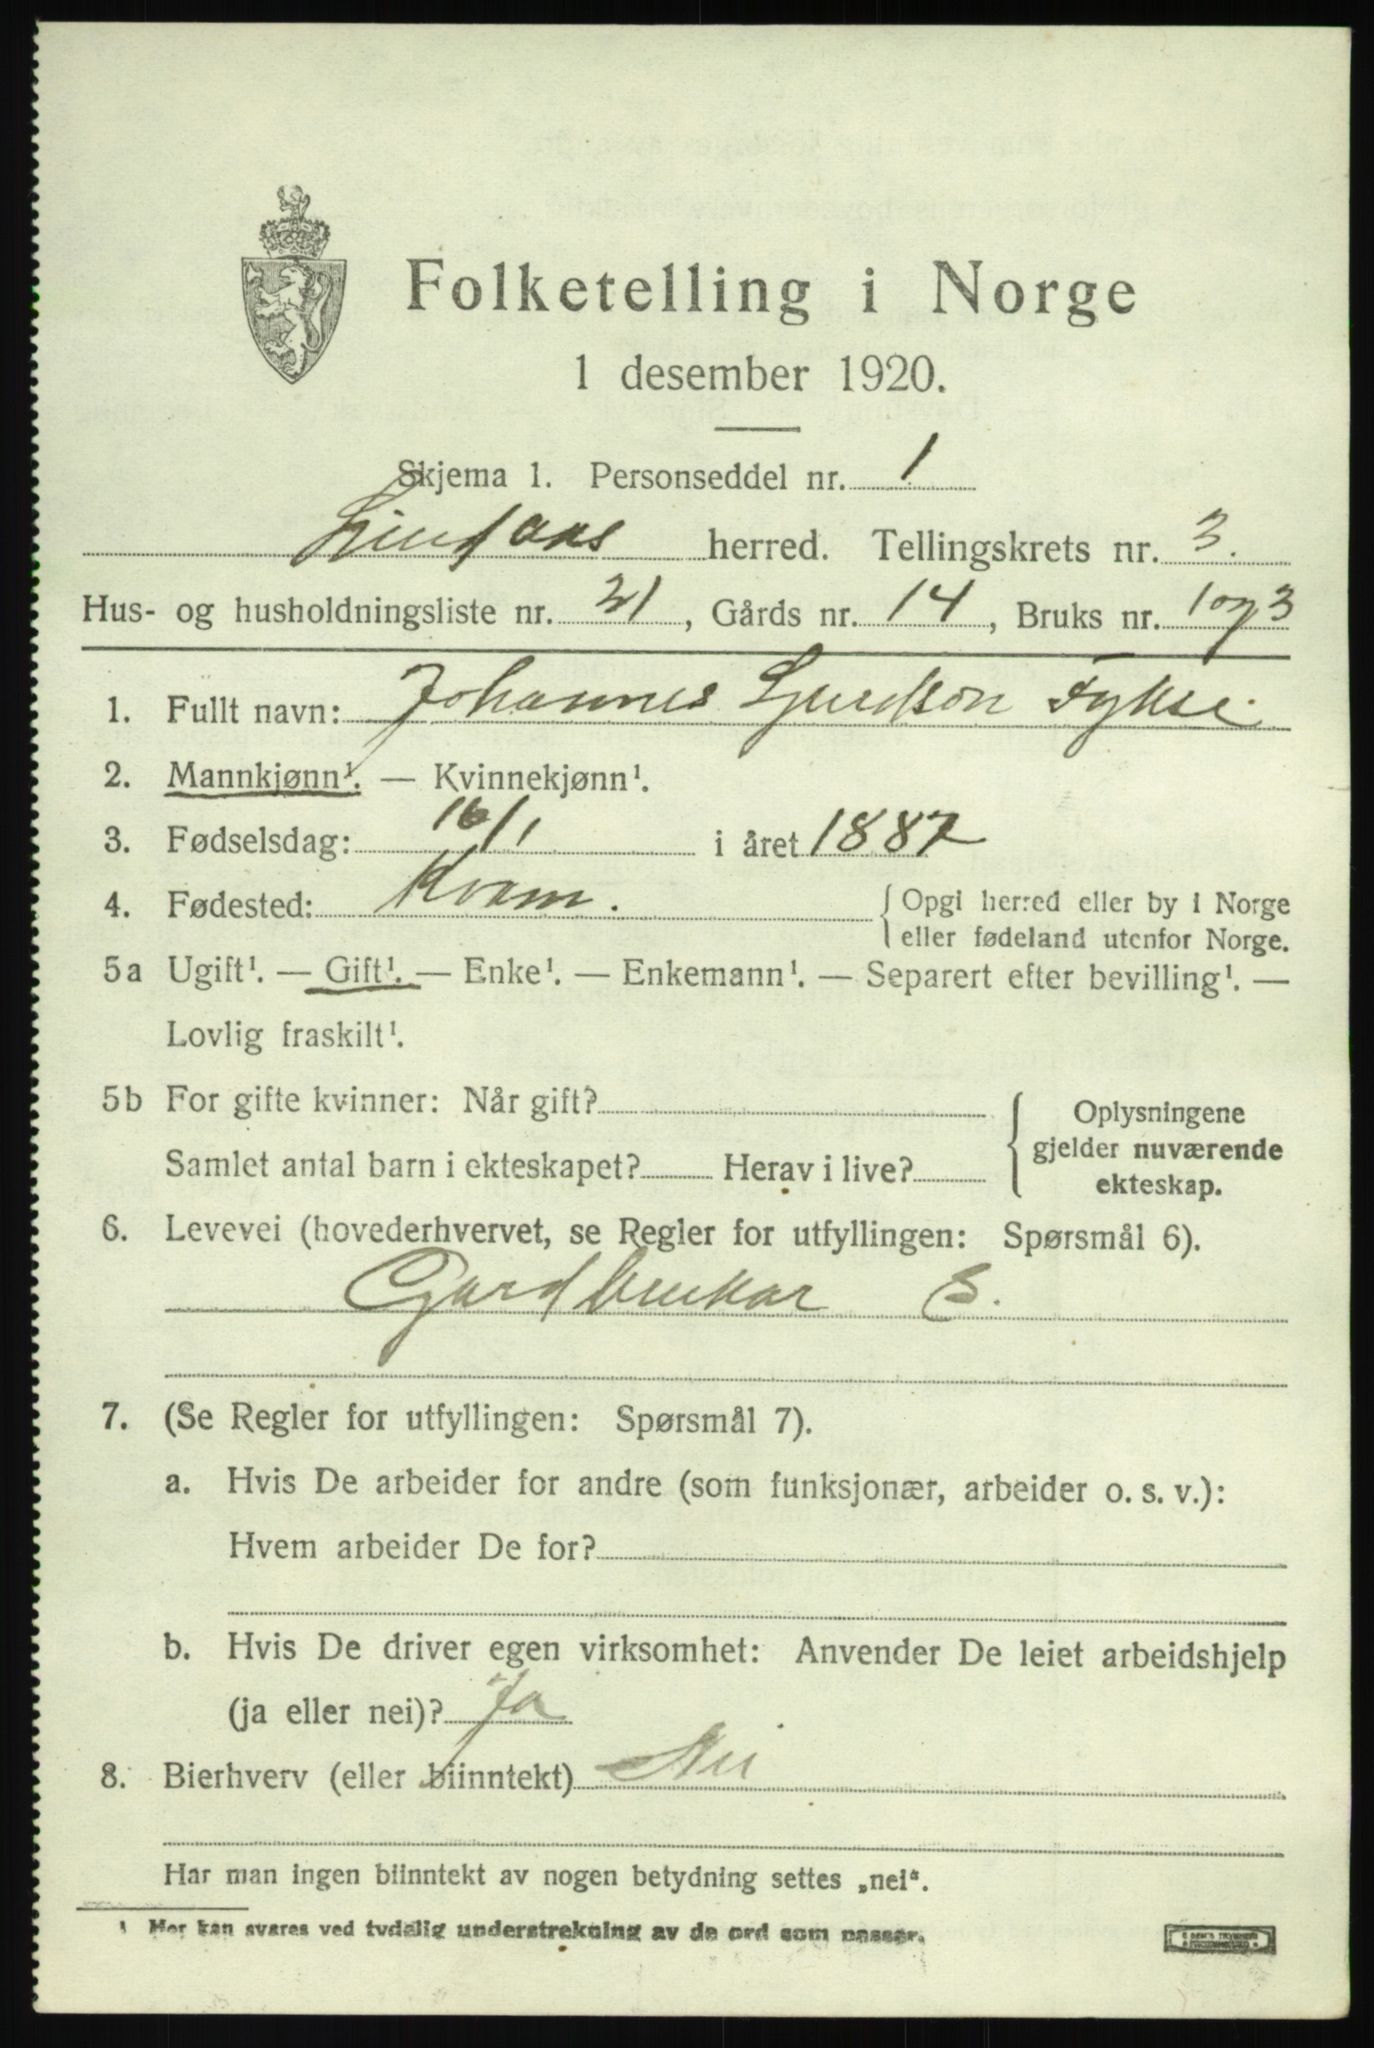 Folketelling i Norge
1 desember 1920.
Skjema 1. Personseddel nr. 1
Lindaas herred. Tellingskrets nr. 3.
Hus- og husholdningsliste nr. 21, Gårds nr. 14, Bruks nr. 1 og 3
1. Fullt navn: Johannes Sjurdson Tykse
2. Mannkjønn¹. — Kvinnekjønn¹.
3. Fødselsdag: 16/1 i året 1887
4. Fødested: Kvam. { Opgi herred eller by i Norge
eller fødeland utenfor Norge.
5a Ugift¹. — Gift¹. — Enke¹. — Enkemann¹. — Separert efter bevilling¹. —
Lovlig fraskilt¹.
5b For gifte kvinner: Når gift?
Samlet antal barn i ekteskapet? Herav i live?
Oplysningene
gjelder nuværende
ekteskap.
6. Levevei (hovederhvervet, se Regler for utfyllingen: Spørsmål 6).
Gardbrukar S.
7. (Se Regler for utfyllingen: Spørsmål 7).
a. Hvis De arbeider for andre (som funksjonær, arbeider o. s. v.):
Hvem arbeider De for?
b. Hvis De driver egen virksomhet: Anvender De leiet arbeidshjelp
(ja eller nei)? Ja
8. Bierhverv (eller biinntekt) Nei
Har man ingen biinntekt av nogen betydning settes „nei“.
¹ Her kan svares ved tydelig understrekning av de ord som passer.